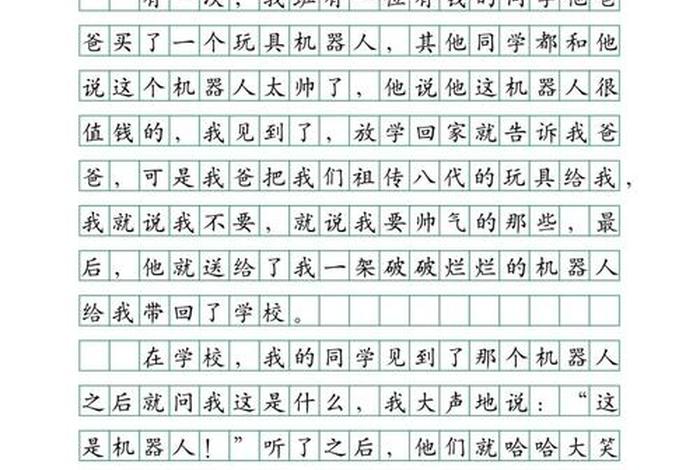 有一次，我班有一位有钱的同学他爸
爸买了一个玩具机器人，其他同学都和他
说这个机器人太帅了，他说他这机器人很
值钱的，我见到了，放学回家就告诉我爸
爸，可是我爸把我们祖传八代的玩具给我，
我就说我不要，就说我要帅气的那些，最
后，他就送给了我一架破破烂烂的机器人
给我带回了学校。
在学校，我的同学见到了那个机器人
之后就问我这是什么，我大声地说：“这
是机器人！”听了之后，他们就哈哈大笑